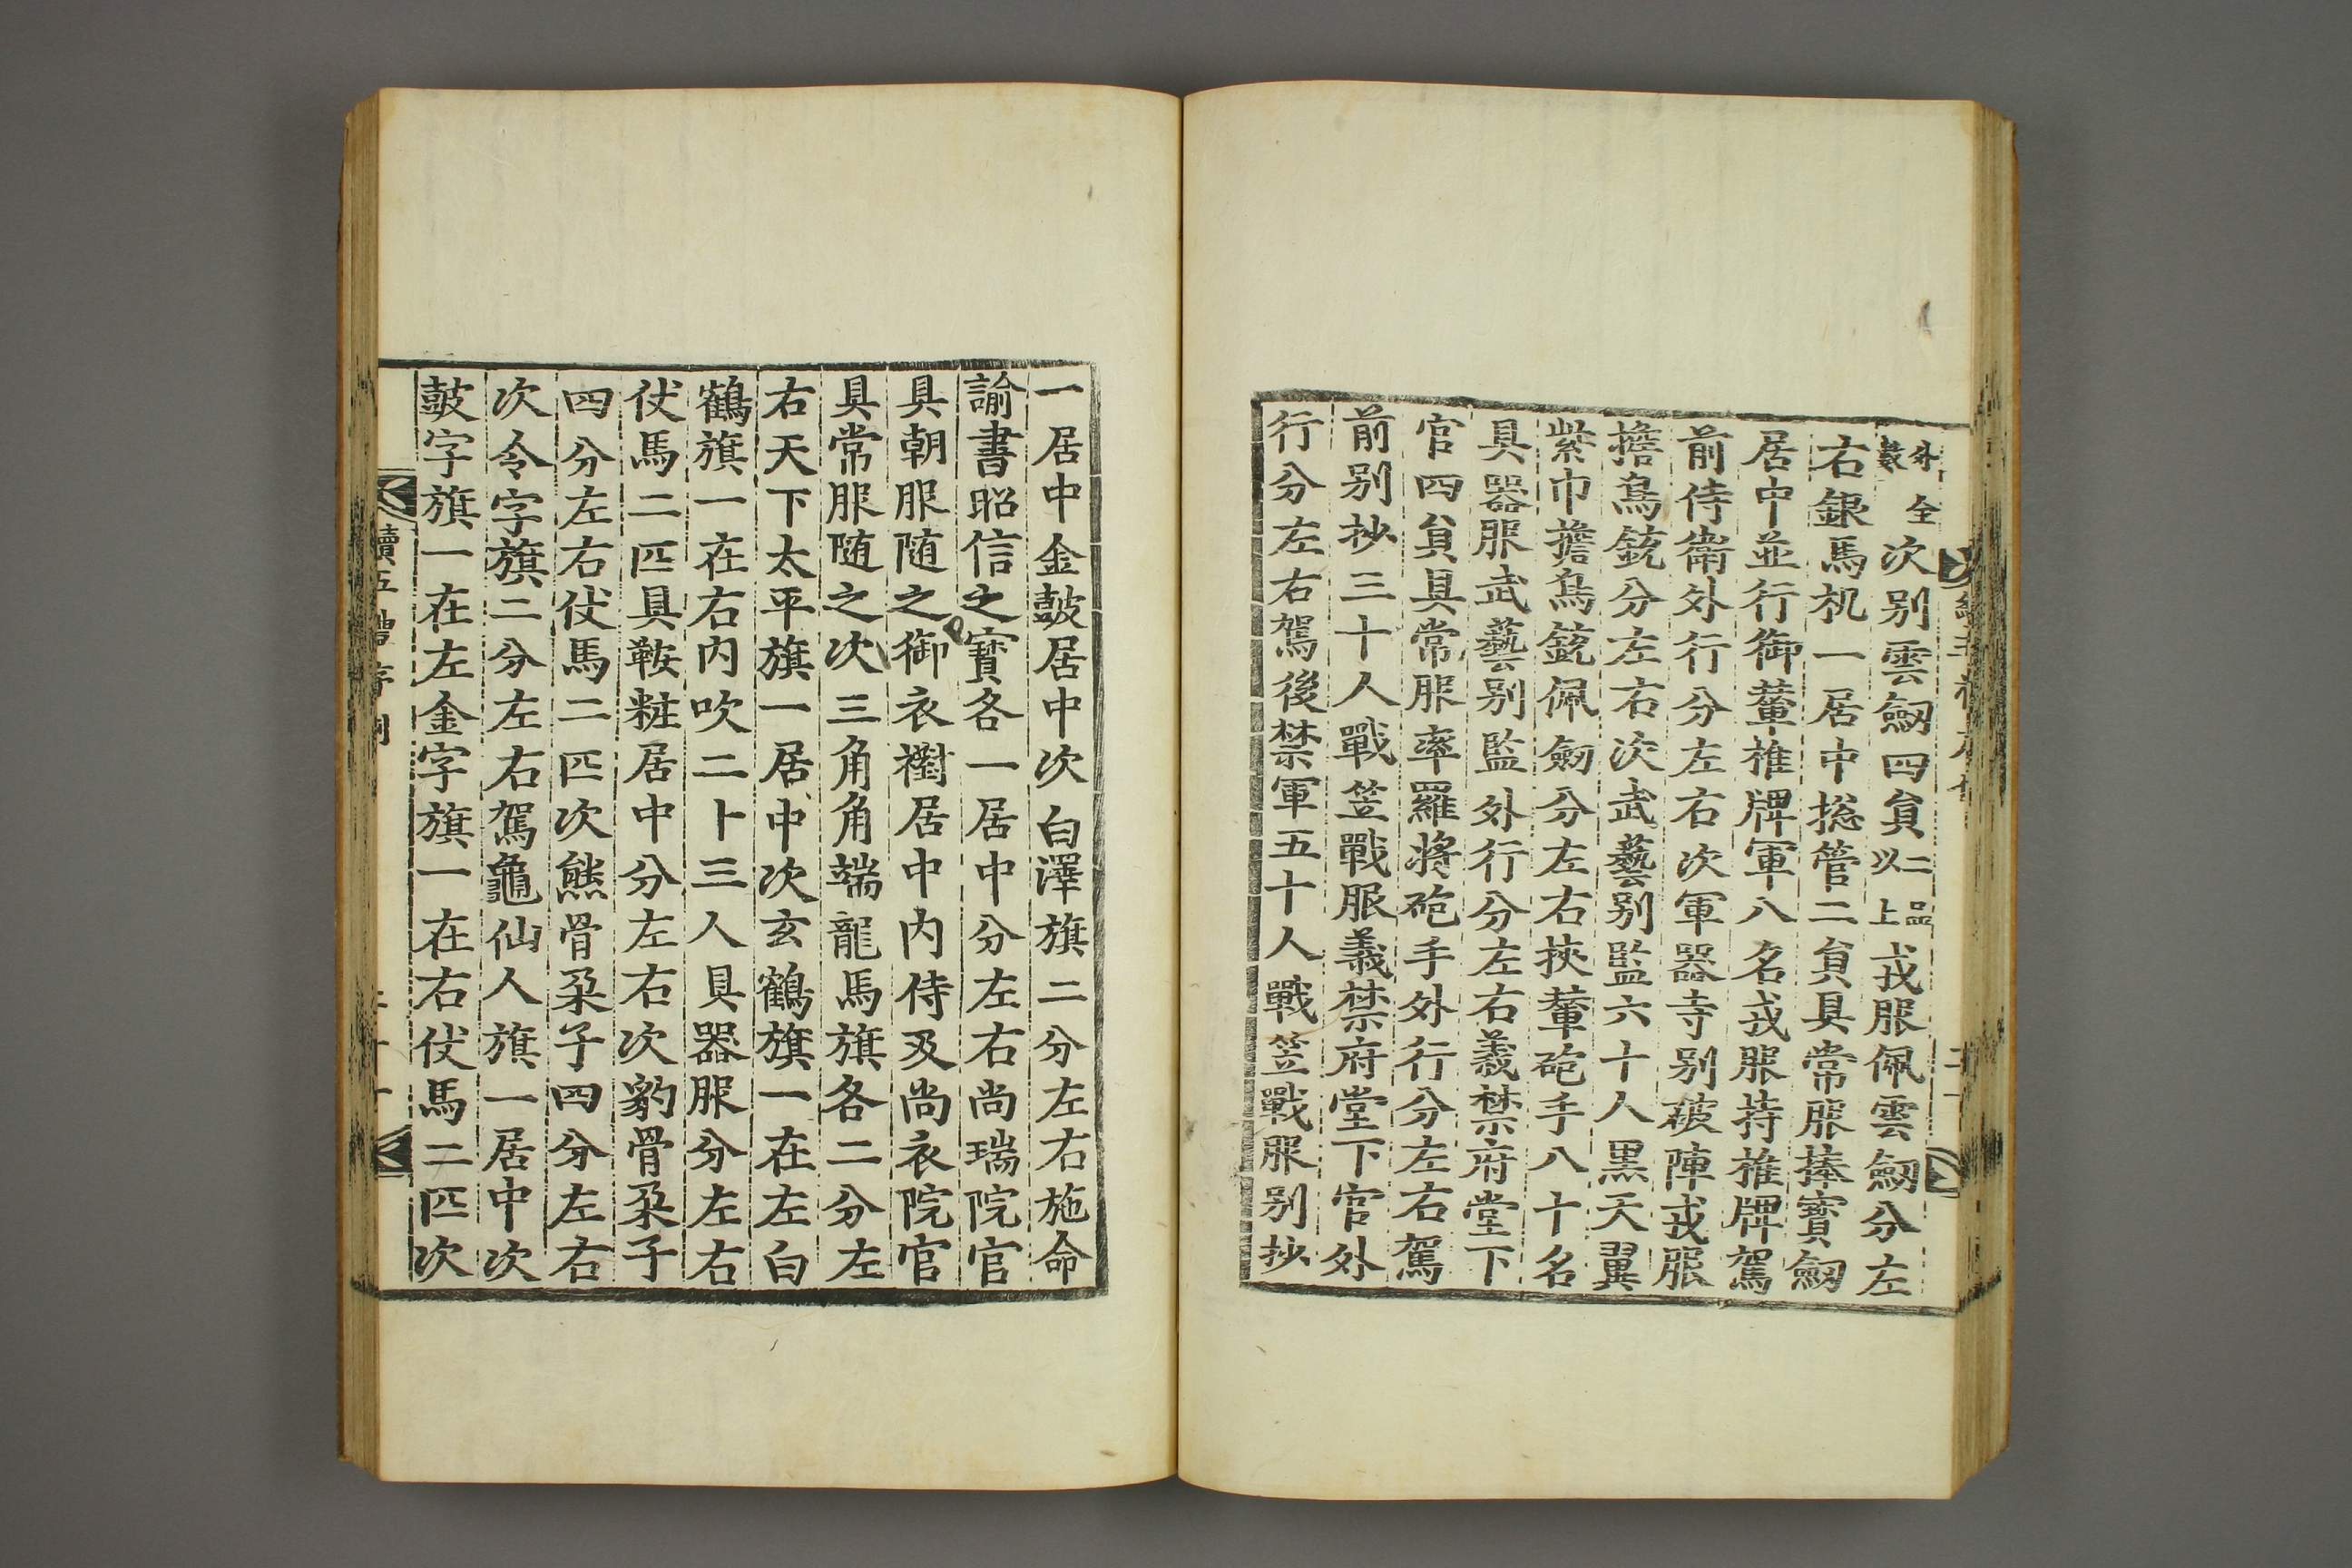 外全
叢
次別雲劒四負二品
以上
戎服佩雲劒分左
右銀馬机一居中捴管二負具常服捧寶劒
居中並行御輦椎牌軍八名戎服持椎牌駕
前侍衞外行分左右次軍器寺別破陣戎服
擔鳥銃分左右次武藝別監六十人黒天翼
紫巾擔鳥銃佩劒分左右挾輦砲手八十名
具器服武藝別監外行分左右義禁府堂下
官四負具常服率羅將砲手外行分左右駕
前別抄三十人戰笠戰服義禁府堂下官外
行分左右駕後禁軍五十人戰笠戰服別抄
一居中金皷居中次白澤旗二分左右施命
諭書昭信之寶各一居中分左右尚瑞院官
具朝服随之御衣襨居中内侍及尚衣院官
具常服随之次三角角端龍馬旗各二分左
右天下太平旗一居中次玄鶴旗一在左白
鶴旗一在右内吹二卜三人具器服分左右
仗馬二匹具鞍粧居中分左右次豹骨朶子
四分左右仗馬二匹次熊骨朶子四分左右
次令字旗二分左右駕龜仙人旗一居中次
皷字旗一在左金字旗一在右仗馬二匹次
續五禮序例